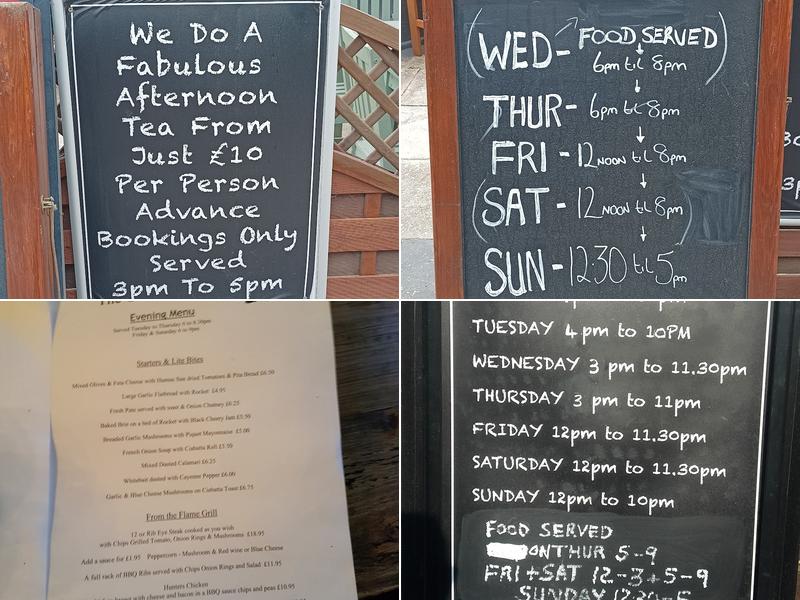 We Do A
Fabulous
Afternoon
Tea From
Just £10
Per Person
Advance
Bookings Only
Served
3pm To 5pm
(WED- FOOD SERVED)
6pm til 8pm
THUR- 6pm til 8pm
FRI - 12 NOON til 8pm
(SAT- 12 NOON til 8pm)
SUN - 12:30 til 5pm
Evening Menu
Served Tuesday to Thursday 6 to 8.30pm
Friday & Saturday 6 to 9pm
Starters & Lite Bites
Mixed Olives & Feta Cheese with Humus Sun dried Tomatoes & Pita Bread £6.50
Large Garlic Flatbread with Rocket £4.95
Fresh Pate served with toast & Onion Chutney £6.25
Baked Brie on a bed of Rocket with Black Cherry Jam £5.50
Breaded Garlic Mushrooms with Piquet Mayonnaise £5.00
French Onion Soup with Ciabatta Roll £5.50
Mixed Dusted Calamari £6.25
Whitebait dusted with Cayenne Pepper £6.00
Garlic & Blue Cheese Mushrooms on Ciabatta Toast £6.75
From the Flame Grill
12 oz Rib Eye Steak cooked as you wish
with Chips Grilled Tomato, Onion Rings & Mushrooms £18.95
Add a sauce for £1.95 Peppercorn - Mushroom & Red wine or Blue Cheese
A full rack of BBQ Ribs served with Chips Onion Rings and Salad £11.95
Hunters Chicken
with cheese and bacon in a BBQ sauce chips and peas £10.95
TUESDAY 4pm to 10PM
WEDNESDAY 3 pm to 11.30pm
THURSDAY 3 pm to 11pm
FRIDAY 12pm to 11.30pm
SATURDAY 12pm to 11.30pm
SUNDAY 12pm to 10pm
FOOD SERVED
ON THUR 5-9
FRI + SAT 12-3 + 5-9
SUNDAY 12:30-5